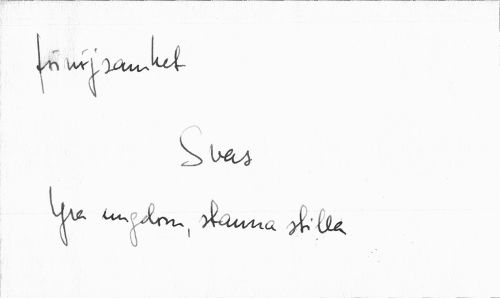 förnöjsamhet
Svas
Yra ungdom, stanna stilla